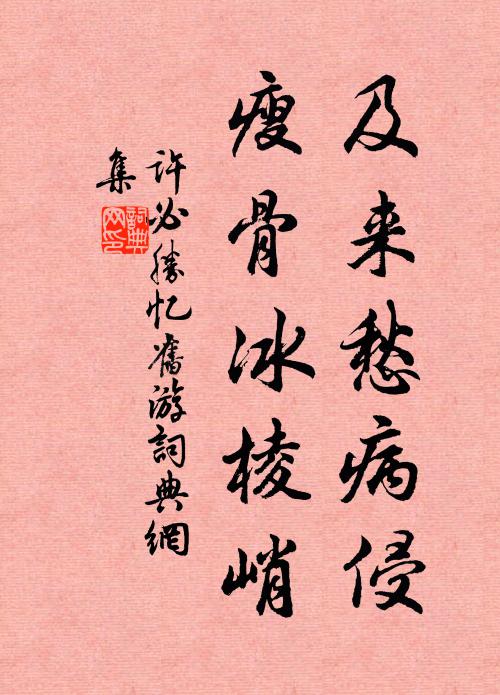 及来愁病侵
瘦骨冰棱峭
许必胜忆旧游詞典網
集
詞典网印